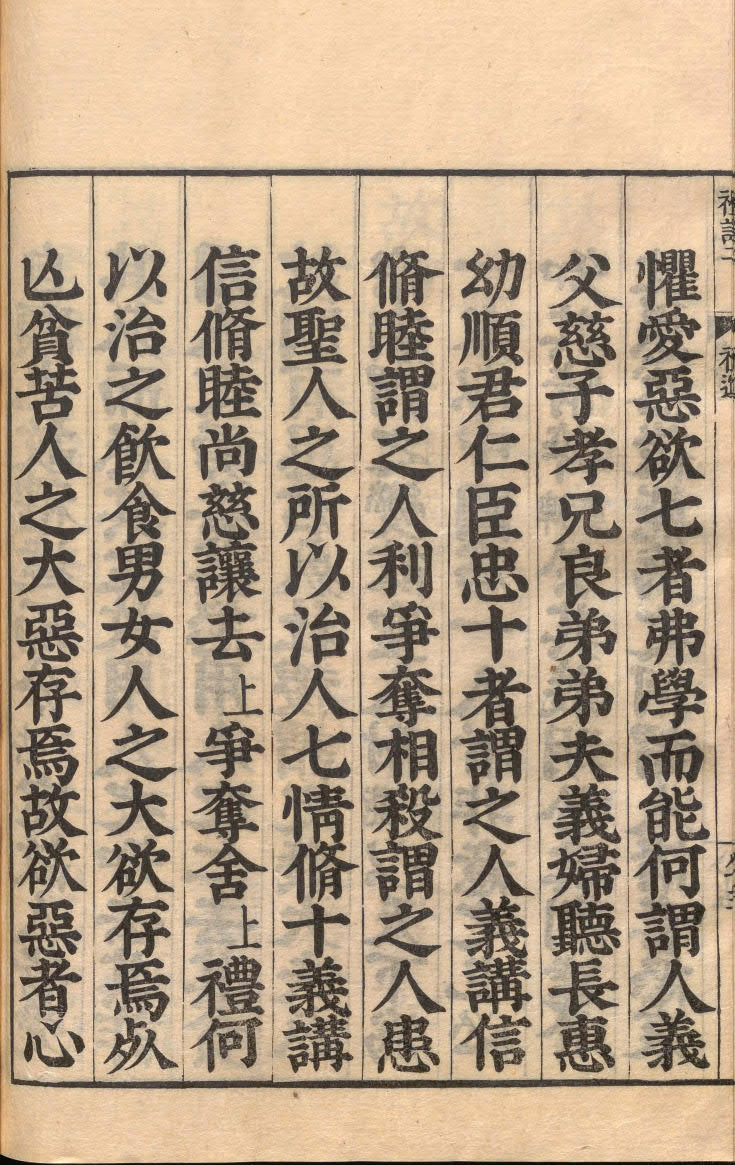 懼愛惡欲七者弗學而能何謂人義
父慈子孝兄良弟弟夫義婦聽長惠
幼順君仁臣忠十者謂之人義講信
脩睦謂之人利爭奪相殺謂之人患
故聖人之所以治人七情脩十義講
信脩睦尚慈讓去上爭奪舍上禮何
以治之飲食男女人之大欲存焉死
亾貧苦人之大惡存焉故欲惡者心